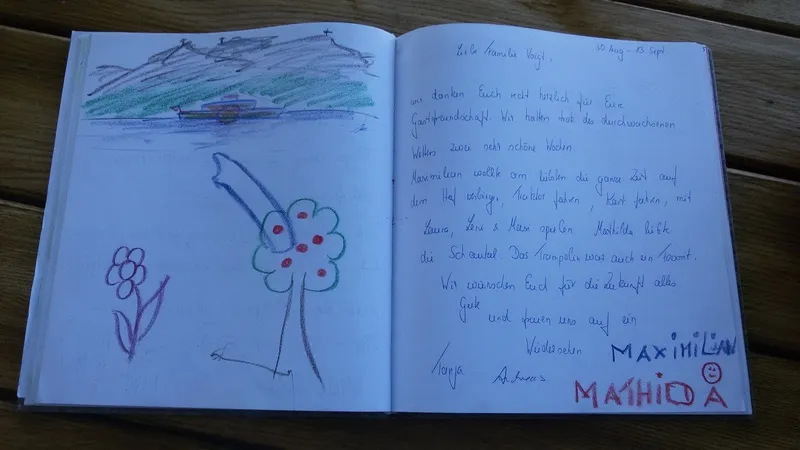 Liebe Familie Voigt, 30 Aug – 13 Sept
wir danken Euch recht herzlich für Eure
Gastfreundschaft. Wir hatten trotz des durchwachsenen
Wetters zwei sehr schöne Wochen.
Maximilian wollte am liebsten die ganze Zeit auf
dem Hof verbringen, Traktor fahren, Kart fahren, mit
Laura, Lena & Maxi spielen. Mathilda liebte
die Schaukel. Das Trampolin war auch ein Traum.
Wir wünschen Euch für die Zukunft alles
Gute
und freuen uns auf ein
Wiedersehen
MAXIMILIAN
Tanja Andreas
MATHILDA